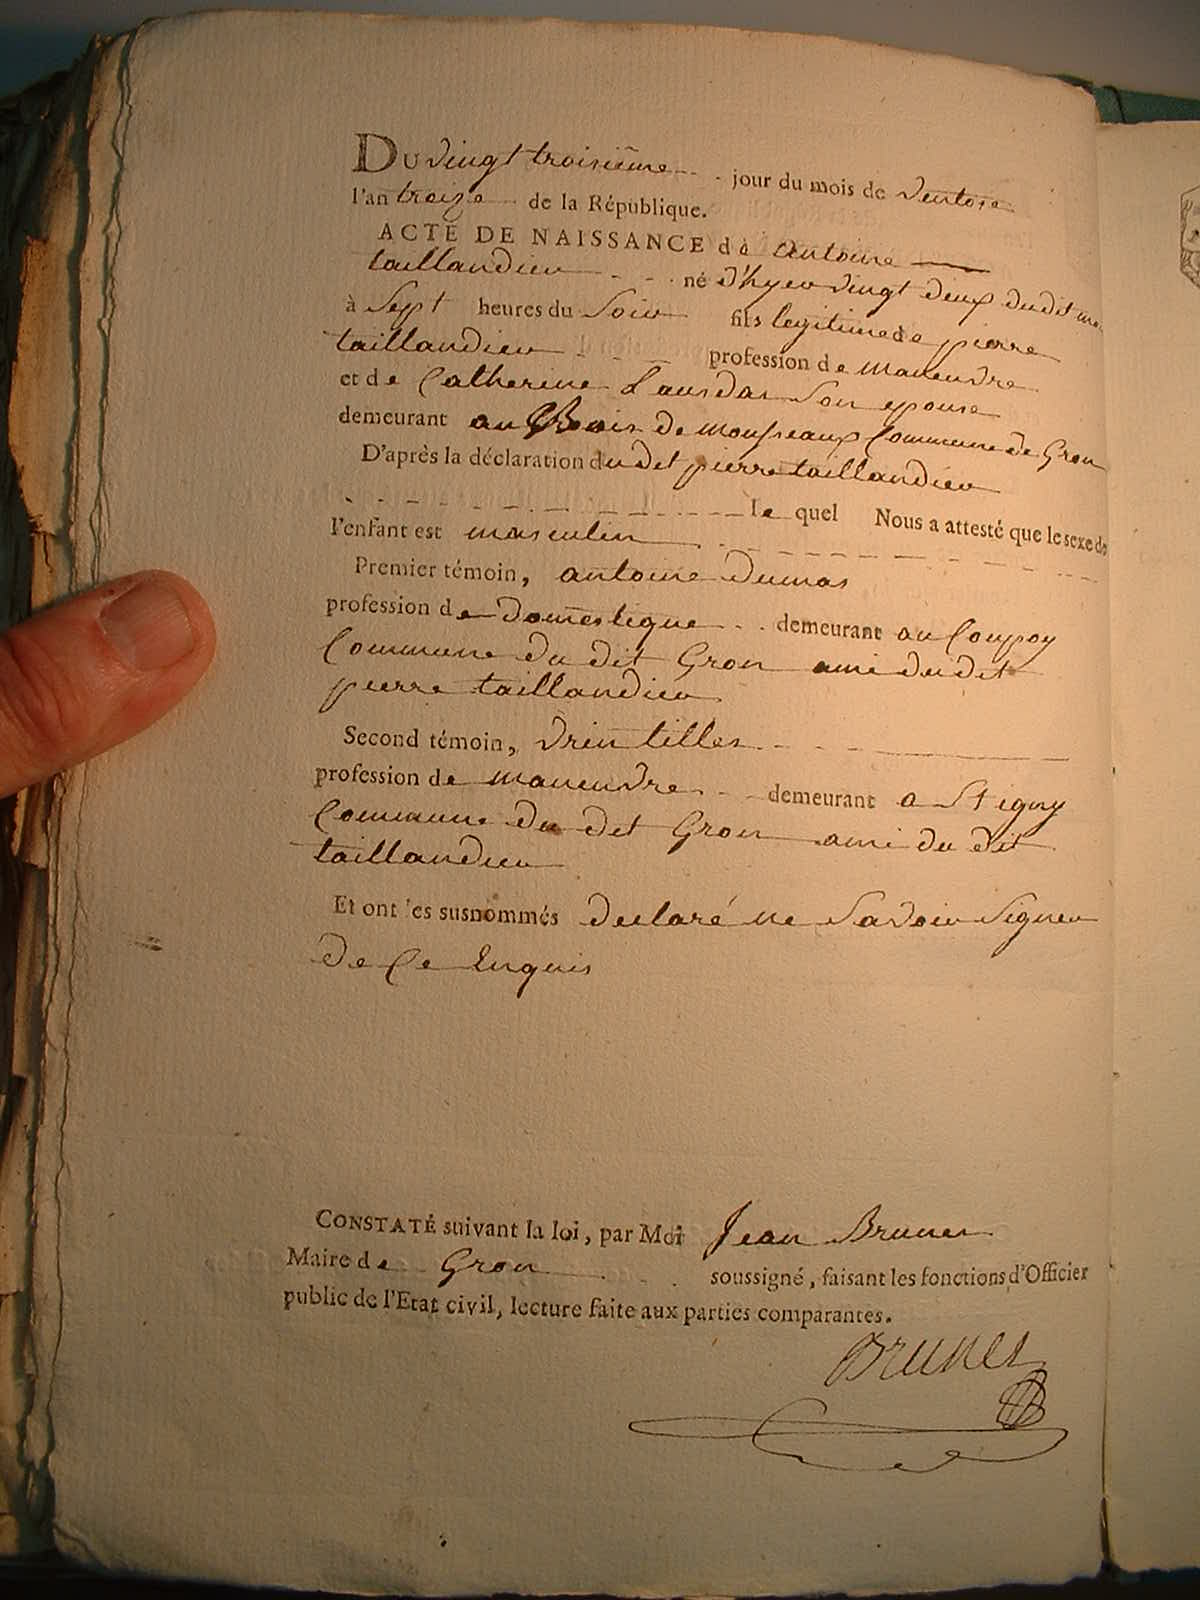 DU vingt troisième jour du mois de Ventose
l'an treize de la République.
ACTE DE NAISSANCE de Antoine
taillandier né d'hyer vingt deux dudit
à Sept heures du Soir fils legitime de pierre
taillandier profession de maneuvre
et de Catherine Son epouse
demeurant au de Commune de Gron
D'après la déclaration dudet pierre taillandier
Le quel Nous a attesté que le sexe de
l'enfant est masculin
Premier témoin, antoine dumas
profession de Domestique demeurant au Coupoy
Commune du dit Gron ami dudet
pierre taillandier
Second témoin, tilles
profession de maneuvre demeurant a St igny
Commune du det Gron ami du dit
taillandier
Et ont les susnommés declaré ne Savoir Signer
de Ce Enquis
CONSTATÉ suivant la loi, par Moi Jean Brunet
Maire de Gron soussigné, faisant les fonctions d'Officier
public de l'Etat civil, lecture faite aux parties comparantes.
Brunet